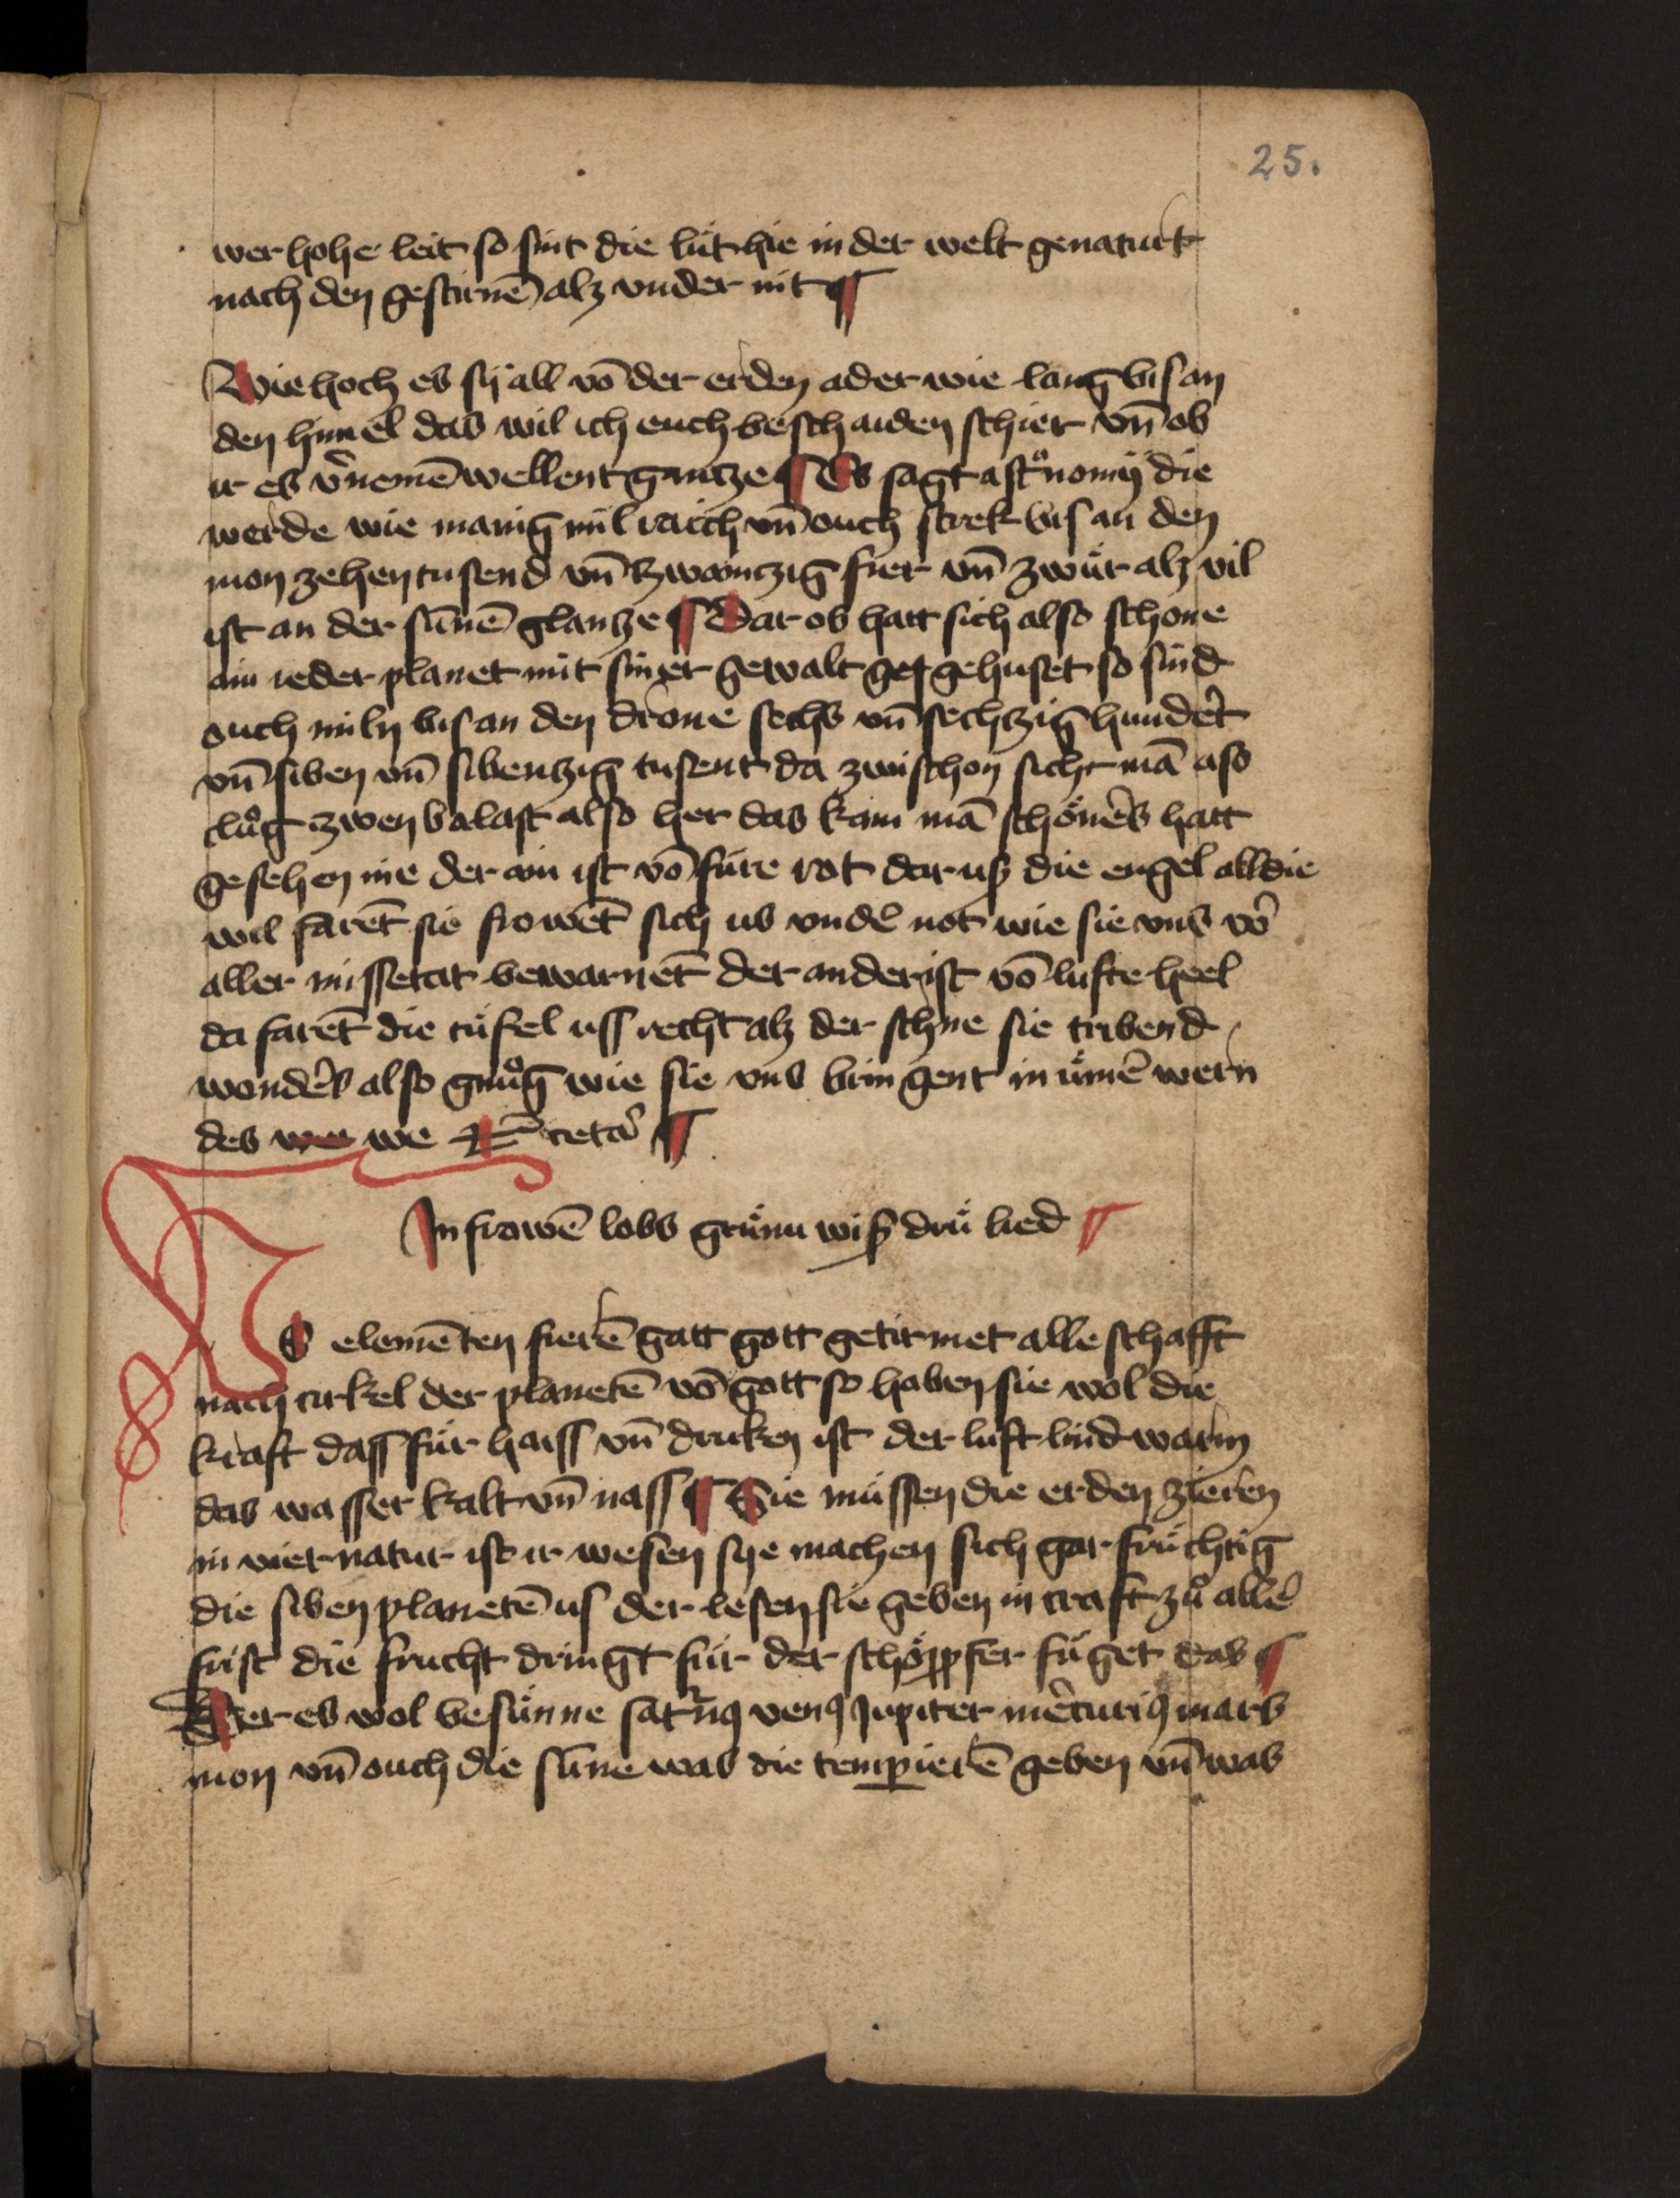 25.
wer hohe leit so sint die lüt hie in der welt genaturt
nach den gestirnē alz vnder nit ¶
Wie hoch es sÿ all vō der erden ader wie lang bis an
den himel das wil ich euch beschaiden schier vn̄ ob
ir es v̾nemē wellent gantze ¶ Es sagt astᵒnomÿ die
werde wie manig mil raich vn̄ ouch strek bis an den
mon zehen tusend vn̄ zwainczig fier vn̄ zwuͤr alz vil
ist an der sūnē glantze ¶ Dar ob hatt sich also schone
ain ieder planet mit siner gewalt gehuset so sind
ouch miln bis an den drone sechs vn̄ sechtzig hunder̾t
vn̄ siben vn̄ sibentzig tusent da zwischon sicht mā aso
cluͦg zwen balast also her das kain mā schoͤner̾s hatt
gesehen nie der ain ist vō füre rot dar usz die engel all die
wil farēt sie frowēt sich us vnd̾ not wie sie vns vō
aller missetat bewarnēt der ander ist vō lufte heel
da farēt die tüfel uss recht alz der schne sie tribend
wonder̾s also gnuͦg wie sie vns bringent in uͤmē wern
des we we  ceta̾ ¶
In frowē lobs gruͤnn wiß druͤ lied ¶
ES elemēten fierē gatt gott getirmet alle schafft
nach cirkel der planetē vō gott so haben sie wol die
kraft dass für haiss vn̄ druken ist der luft lind warm
das wasser kalt vn̄ nass ¶ Sie müssen die erden zieren
in vier natur ist ir wesen sye machen sich gar fruͤchtig
die siben planetē us der lesen sie geben in craft zuͦ alle̾
frist die frucht dringt für der schoͤppfer fuͤget das ¶
Der es wol besuͤnne satˀnꝰ venꝰ Jupiter me̾curiꝰ mars
mon vn̄ ouch die sūne was die temperierē geben vn̄ was